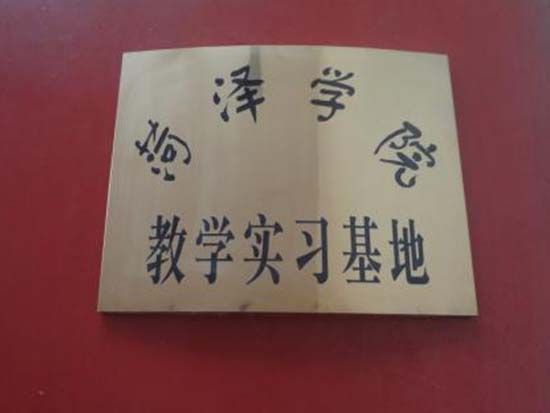 菏泽学院
教学实习基地